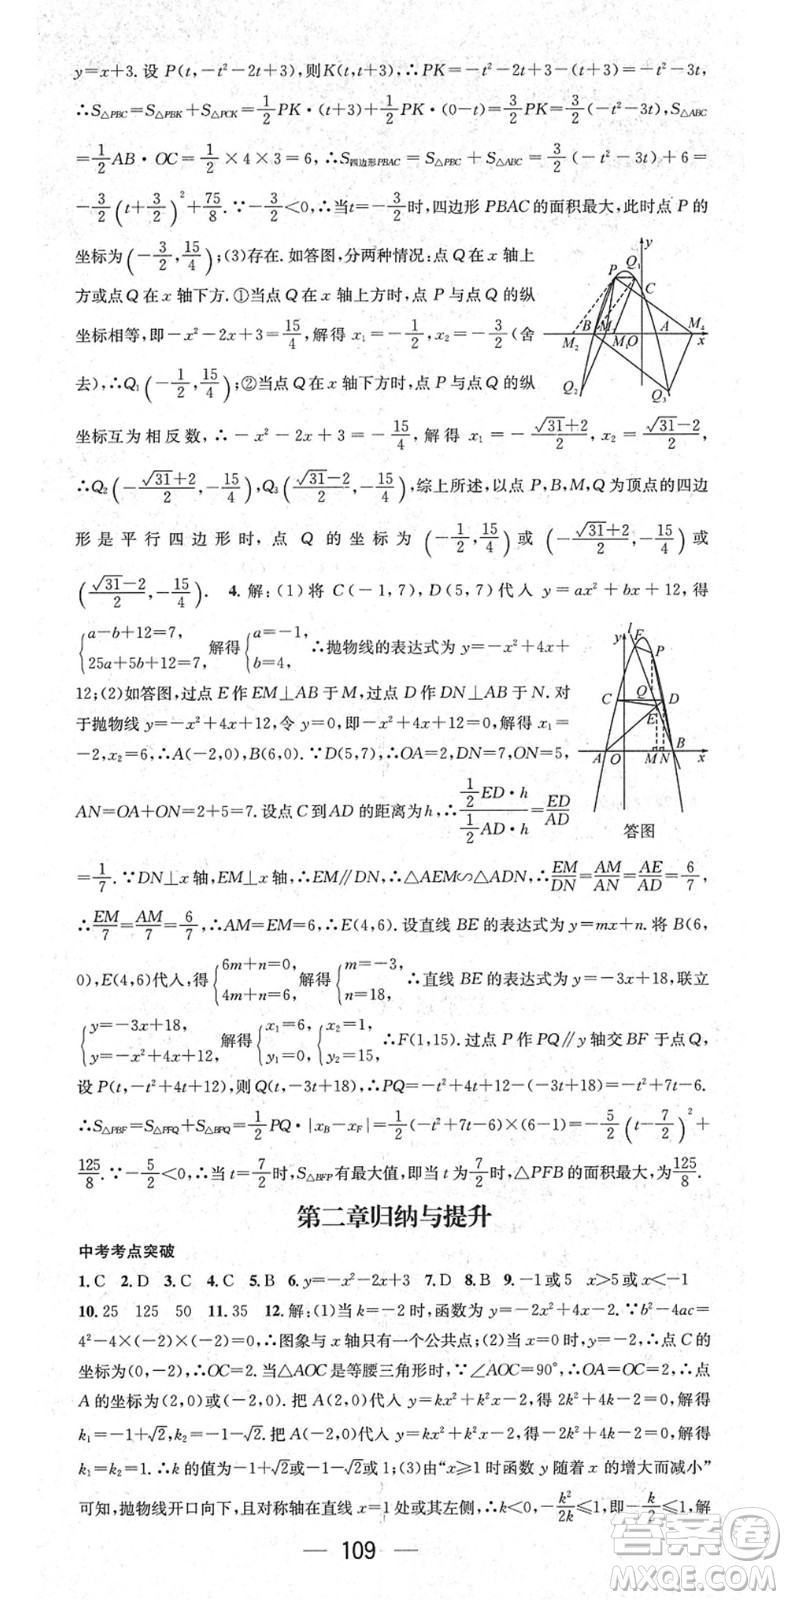 y=x+3. 设 P(t,-t²-2t+3),则K(t,t+3),∴PK=-t²-2t+3-(t+3)=-t²-3t,
∴S△PBC=S△PBK+S△PCK=1/2PK·(t+3)+1/2PK·(0-t)=3/2PK=3/2(-t²-3t),S△ABC
=1/2AB·OC=1/2×4×3=6,∴S四边形PBAC=S△PBC+S△ABC=3/2(-t²-3t)+6=
-3/2(t+3/2)²+75/8.∵-3/2<0,∴当t=-3/2时,四边形 PBAC的面积最大,此时点 P 的
坐标为(-3/2,15/4);(3)存在. 如答图,分两种情况:点 Q 在 x 轴上
方或点Q在x轴下方. ①当点Q在x轴上方时,点P与点Q的纵
坐标相等,即-x²-2x+3=15/4,解得 x₁=-1/2,x₂=-3/2(舍
去),∴Q₁(-1/2,15/4);②当点Q在x轴下方时,点P与点Q的纵
坐标互为相反数,∴-x²-2x+3=-15/4,解得 x₁=-(√31+2)/2,x₂=(√31-2)/2,
∴Q₂(-(√31+2)/2,-15/4),Q₃((√31-2)/2,-15/4),综上所述,以点 P,B,M,Q 为顶点的四边
形是平行四边形时,点 Q 的坐标为(-1/2,15/4)或(-(√31+2)/2,-15/4)或
((√31-2)/2,-15/4). 4. 解:(1)将 C(-1,7),D(5,7)代入 y=ax²+bx+12,得
{a-b+12=7, 25a+5b+12=7,解得{a=-1, b=4,∴抛物线的表达式为 y=-x²+4x+
12;(2)如答图,过点 E 作 EM⊥AB 于 M,过点 D 作 DN⊥AB 于 N. 对
于抛物线 y=-x²+4x+12,令 y=0,即-x²+4x+12=0,解得 x₁=
-2,x₂=6,∴A(-2,0),B(6,0).∵D(5,7),∴OA=2,DN=7,ON=5,
AN=OA+ON=2+5=7. 设点 C 到 AD 的距离为 h,∴(1/2ED·h)/(1/2AD·h)=ED/AD
=1/7.∵DN⊥x 轴,EM⊥x 轴,∴EM∥DN,∴△AEM∽△ADN,∴EM/DN=AM/AN=AE/AD=6/7,
∴EM/7=AM/7=6/7,∴AM=EM=6,∴E(4,6). 设直线 BE 的表达式为 y=mx+n. 将 B(6,
0),E(4,6)代入,得{6m+n=0, 4m+n=6,解得{m=-3, n=18,∴直线 BE 的表达式为 y=-3x+18,联立
{y=-3x+18, y=-x²+4x+12,解得{x₁=6, y₁=0,{x₂=1, y₂=15,∴F(1,15). 过点 P 作 PQ∥y 轴交 BF 于点 Q,
设 P(t,-t²+4t+12),则 Q(t,-3t+18),∴PQ=-t²+4t+12-(-3t+18)=-t²+7t-6.
∴S△PBF=S△PFQ+S△BPQ=1/2PQ·|xB-xF|=1/2(-t²+7t-6)×(6-1)=-5/2(t-7/2)²+
125/8.∵-5/2<0,∴当 t=7/2时,S△BFP有最大值,即当 t 为7/2时,△PFB 的面积最大,为125/8.
y
P
Q₁
C
B
M
M₂
M₁
O
A
M₄
x
Q₂
Q₃
l
y
F
P
C
Q
D
E
A
O
M
N
B
x
答图
第二章归纳与提升
中考考点突破
1. C 2. D 3. C 4. C 5. B 6. y=-x²-2x+3 7. D 8. B 9. -1或5 x>5或x<-1
10. 25 125 50 11. 35 12. 解:(1)当 k=-2 时,函数为 y=-2x²+4x-2.∵b²-4ac=
4²-4×(-2)×(-2)=0,∴图象与 x 轴只有一个公共点;(2)当 x=0 时,y=-2,∴点 C
的坐标为(0,-2),∴OC=2. 当△AOC是等腰三角形时,∵∠AOC=90°,∴OA=OC=2,∴点
A 的坐标为(2,0)或(-2,0). 把 A(2,0)代入 y=kx²+k²x-2,得 2k²+4k-2=0,解得
k₁=-1+√2,k₂=-1-√2. 把 A(-2,0)代入 y=kx²+k²x-2,得-2k²+4k-2=0,解得
k₁=k₂=1.∴k 的值为-1+√2或-1-√2或 1;(3)由“x≥1 时函数 y 随着 x 的增大而减小”
可知,抛物线开口向下,且对称轴在直线 x=1 处或其左侧,∴k<0,-k²/2k≤1,即-k/2≤1,解
109
作业精灵